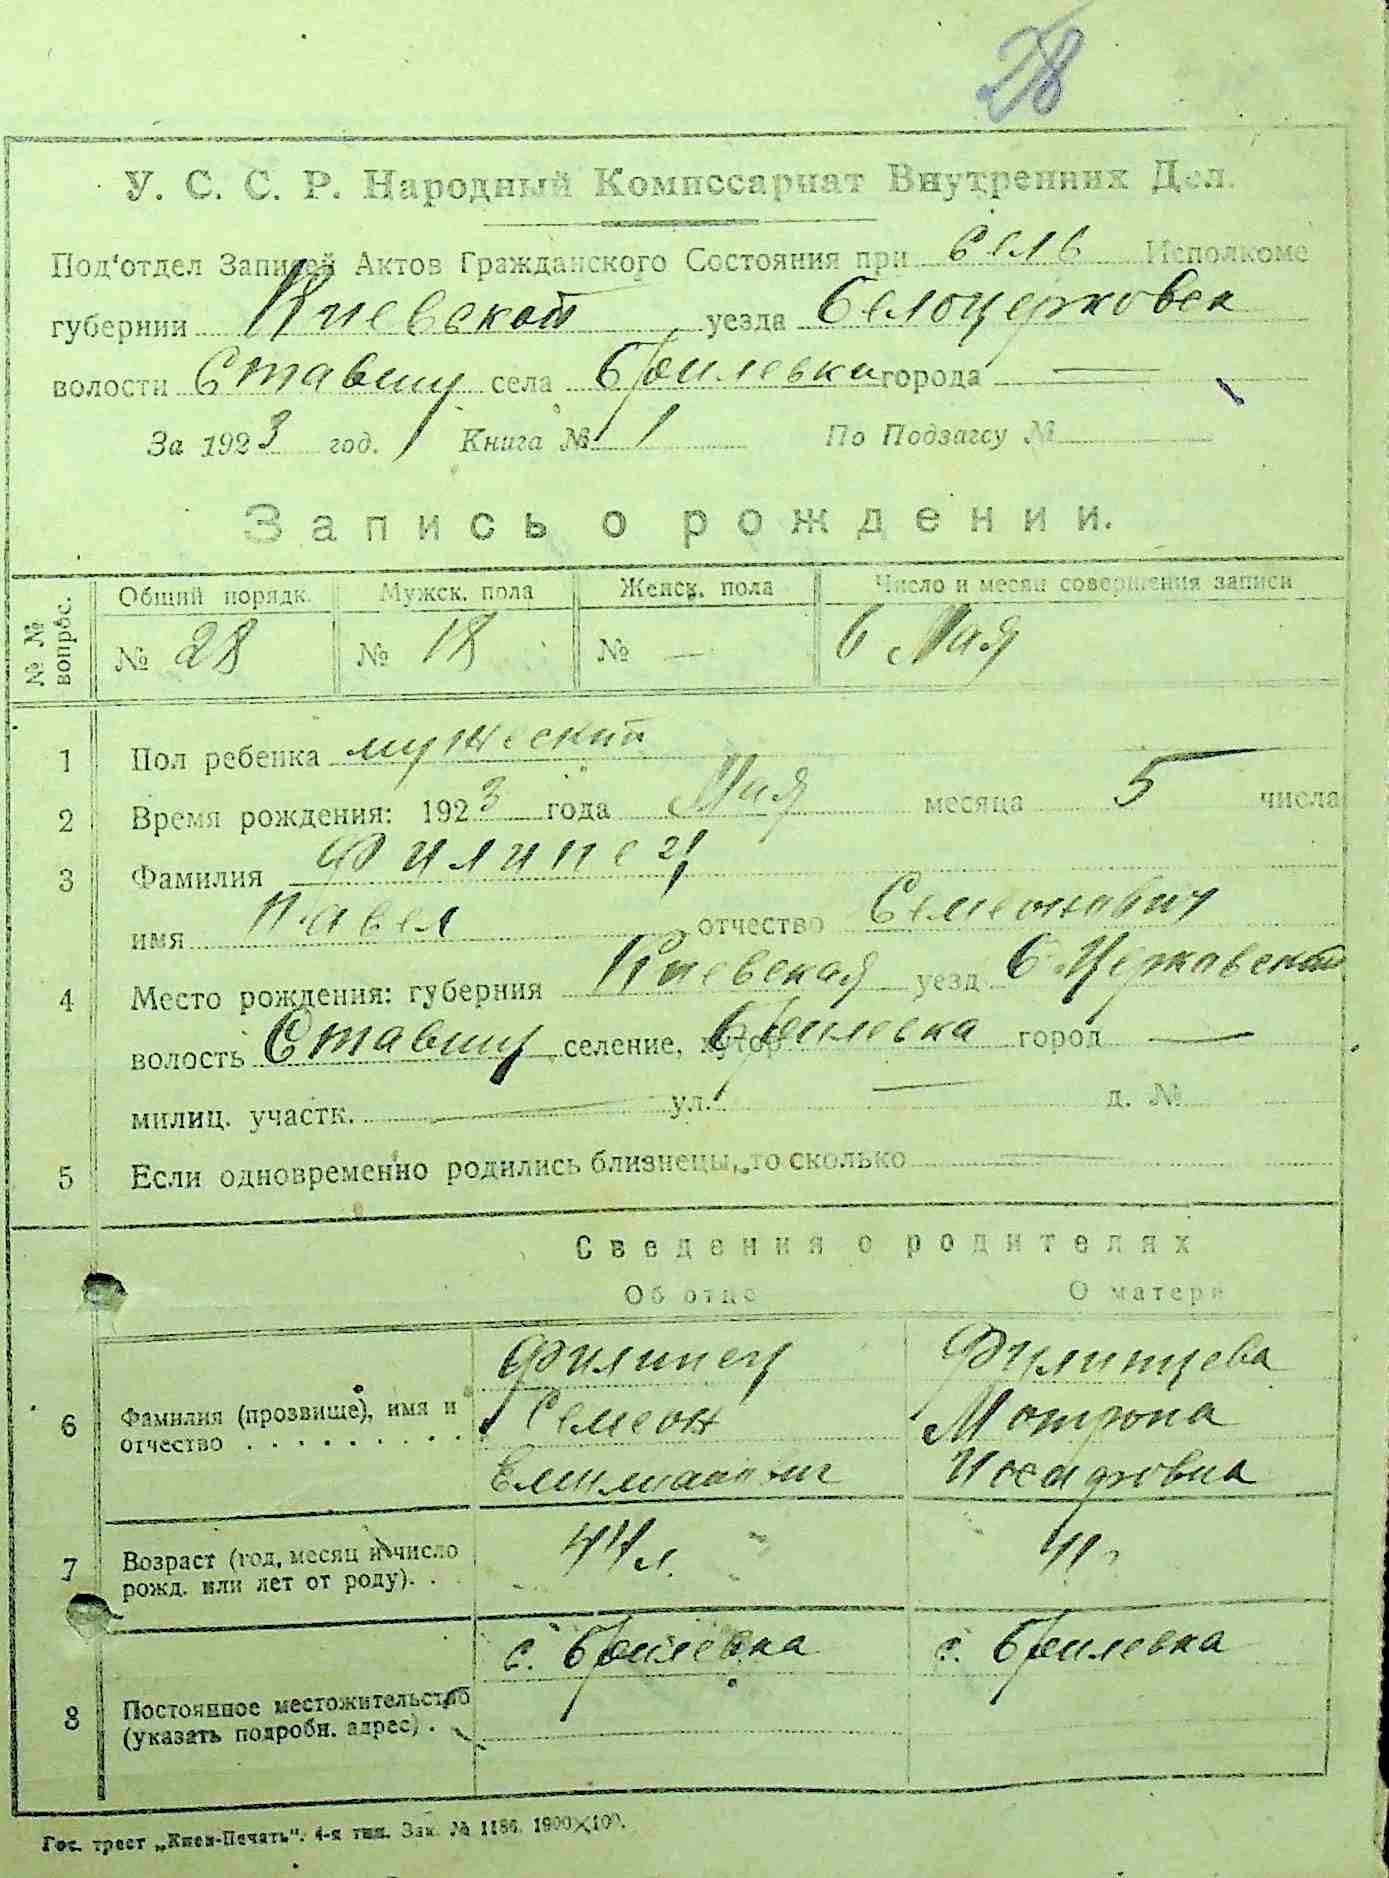 28
У. С. С. Р. Народный Комиссариат Внутренних Дел.
Под'отдел Записей Актов Гражданского Состояния при сель Исполкоме
губернии Киевской уезда Белоцерковск
волости Ставищ села Брилевки города —
За 1923 год. Книга № 1 По Подзагсу №
Запись о рождении.
№ № вопрос.
Общий порядк. Мужск. пола Женск. пола Число и месяц совершения записи
№ 28 № 18 № — 6 Мая
1 Пол ребенка мужеский
2 Время рождения: 1923 года Мая месяца 5 числа
3 Фамилия Филипец
имя Павел отчество Семенович
4 Место рождения: губерния Киевская уезд Б Церковский
волость Ставищ селение, хутор Брилевка город —
милиц. участк. — ул. — д. №
5 Если одновременно родились близнецы, то сколько —
Сведения о родителях
Об отце О матери
Филипец Филипцева
6 Фамилия (прозвище), имя и отчество Семеон Мотрона
7 Возраст (год, месяц и число рожд. или лет от роду). 44 л. 41
с. Брилевка с. Брилевка
8 Постоянное местожительство (указать подробн. адрес)
Гос. трест „Киев-Печать". 4-я тип. Зак. № 1186. 1900×100.